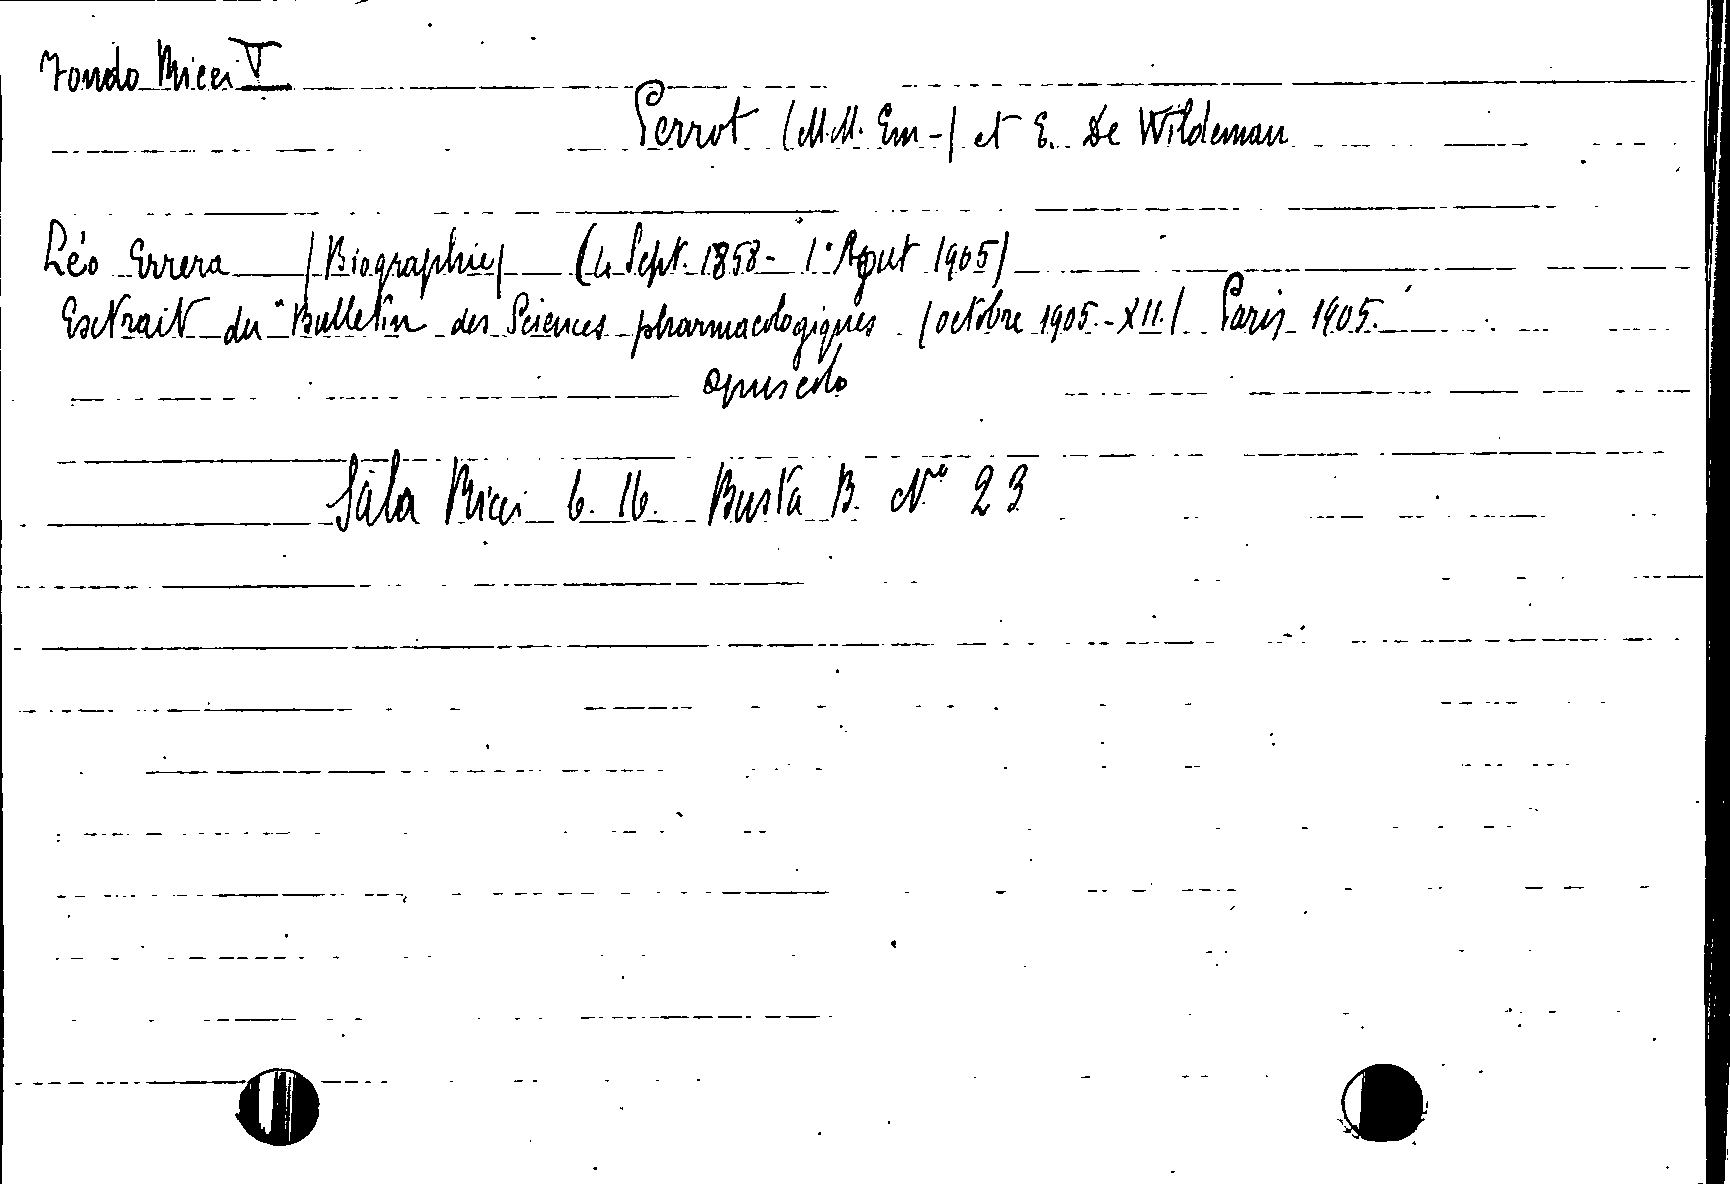 Fondo Ricci V
Perrot (M.M. Em-) et E. De Wildeman
Léo Errera (Biographie) (4 Sept. 1858 - 1° Aout 1905)
Extrait du "Bulletin des Sciences pharmacologiques (octobre 1905.-XII.) Paris 1905.
opuscolo
Sala Ricci 6. 16. Busta B. N° 23